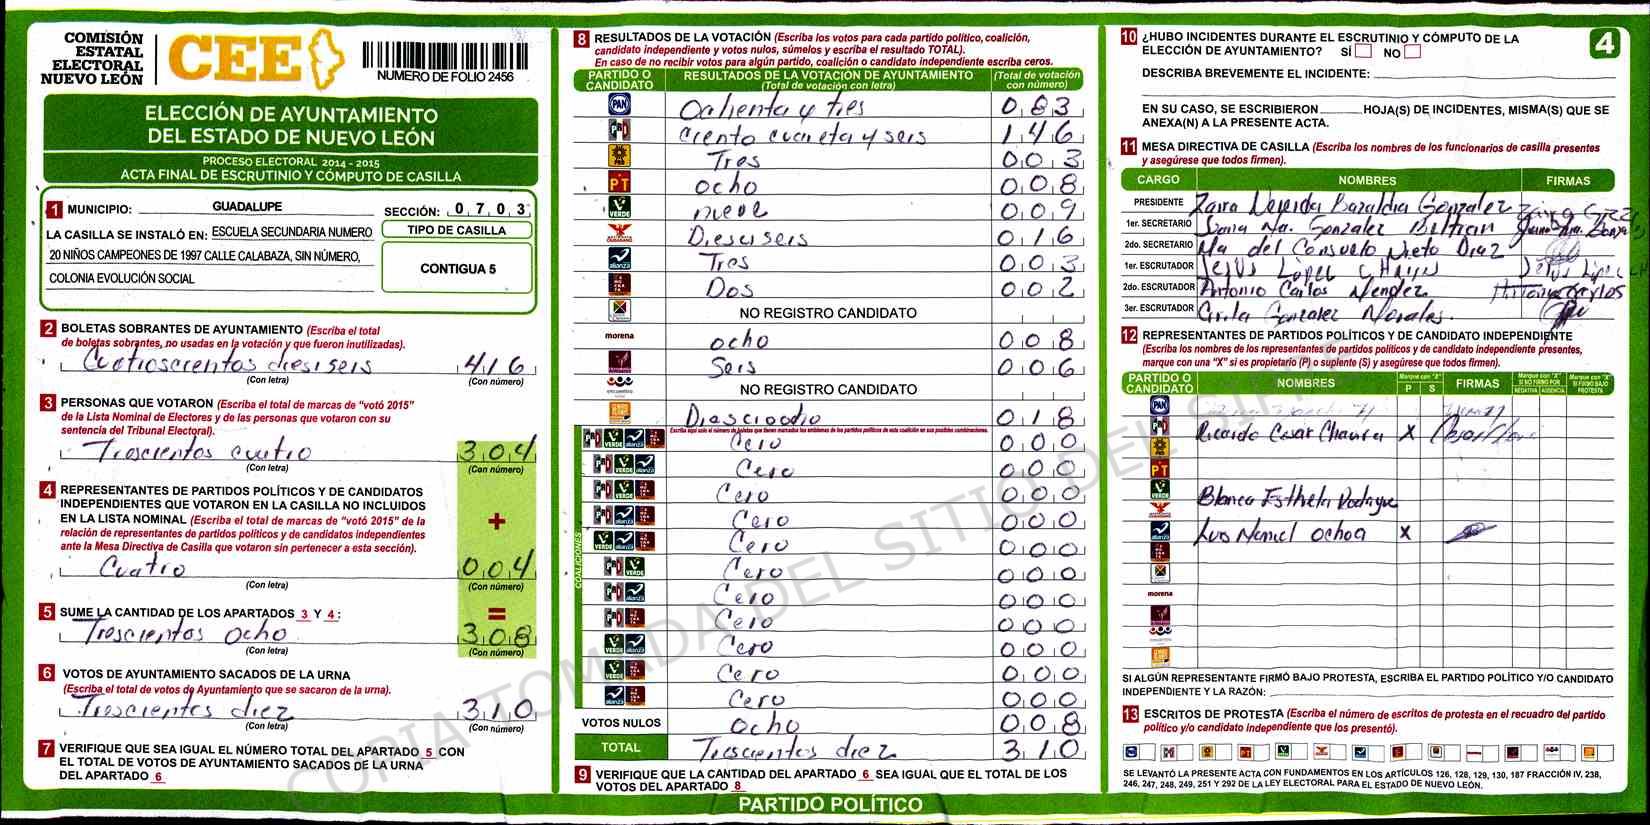 COMISIÓN
ESTATAL
ELECTORAL
NUEVO LEÓN
CEE
NUMERO DE FOLIO 2456
ELECCIÓN DE AYUNTAMIENTO
DEL ESTADO DE NUEVO LEÓN
PROCESO ELECTORAL 2014 - 2015
ACTA FINAL DE ESCRUTINIO Y CÓMPUTO DE CASILLA
1 MUNICIPIO: GUADALUPE SECCIÓN: 0703
LA CASILLA SE INSTALÓ EN: ESCUELA SECUNDARIA NUMERO
20 NIÑOS CAMPEONES DE 1997 CALLE CALABAZA, SIN NÚMERO,
COLONIA EVOLUCIÓN SOCIAL
TIPO DE CASILLA
CONTIGUA 5
2 BOLETAS SOBRANTES DE AYUNTAMIENTO (Escriba el total
de boletas sobrantes, no usadas en la votación y que fueron inutilizadas).
Cuatroscientos diesiseis 416
(Con letra) (Con número)
3 PERSONAS QUE VOTARON (Escriba el total de marcas de “votó 2015”
de la Lista Nominal de Electores y de las personas que votaron con su
sentencia del Tribunal Electoral).
Trescientos cuatro 304
(Con letra) (Con número)
4 REPRESENTANTES DE PARTIDOS POLÍTICOS Y DE CANDIDATOS
INDEPENDIENTES QUE VOTARON EN LA CASILLA NO INCLUIDOS
EN LA LISTA NOMINAL (Escriba el total de marcas de “votó 2015” de la
relación de representantes de partidos políticos y de candidatos independientes
ante la Mesa Directiva de Casilla que votaron sin pertenecer a esta sección).
+
Cuatro 004
(Con letra) (Con número)
5 SUME LA CANTIDAD DE LOS APARTADOS 3 Y 4: =
Trescientos Ocho 308
(Con letra) (Con número)
6 VOTOS DE AYUNTAMIENTO SACADOS DE LA URNA
(Escriba el total de votos de Ayuntamiento que se sacaron de la urna).
Trescientos diez 310
(Con letra) (Con número)
7 VERIFIQUE QUE SEA IGUAL EL NÚMERO TOTAL DEL APARTADO 5 CON
EL TOTAL DE VOTOS DE AYUNTAMIENTO SACADOS DE LA URNA
DEL APARTADO 6
8 RESULTADOS DE LA VOTACIÓN (Escriba los votos para cada partido político, coalición,
candidato independiente y votos nulos, súmelos y escriba el resultado TOTAL).
En caso de no recibir votos para algún partido, coalición o candidato independiente escriba ceros.
PARTIDO O CANDIDATO RESULTADOS DE LA VOTACIÓN DE AYUNTAMIENTO (Total de votación con letra) (Total de votación con número)
PAN Ochenta y tres 083
PRI ciento cuareta y seis 146
PRD Tres 003
PT ocho 008
VERDE nueve 009
Diesciseis 016
alianza Tres 003
Dos 002
NO REGISTRO CANDIDATO
morena ocho 008
Seis 006
NO REGISTRO CANDIDATO
Diesciocho 018
Escriba aquí solo el número de boletas que tienen marcados los emblemas de los partidos políticos de esta coalición en sus posibles combinaciones.
COALICIONES
Cero 000
Cero 000
Cero 000
Cero 000
Cero 000
Cero 000
Cero 000
Cero 000
Cero 000
Cero 000
Cero 000
VOTOS NULOS Ocho 008
TOTAL Trescientos diez 310
9 VERIFIQUE QUE LA CANTIDAD DEL APARTADO 6 SEA IGUAL QUE EL TOTAL DE LOS
VOTOS DEL APARTADO 8
PARTIDO POLÍTICO
10 ¿HUBO INCIDENTES DURANTE EL ESCRUTINIO Y CÓMPUTO DE LA
ELECCIÓN DE AYUNTAMIENTO? SÍ NO
4
DESCRIBA BREVEMENTE EL INCIDENTE:
EN SU CASO, SE ESCRIBIERON HOJA(S) DE INCIDENTES, MISMA(S) QUE SE
ANEXA(N) A LA PRESENTE ACTA.
11 MESA DIRECTIVA DE CASILLA (Escriba los nombres de los funcionarios de casilla presentes
y asegúrese que todos firmen).
CARGO NOMBRES FIRMAS
PRESIDENTE Zaira Nereida Bazaldua Gonzalez
1er. SECRETARIO Ma. Gonzalez Beltran
2do. SECRETARIO Ma del Consuelo Nieto Diaz
1er. ESCRUTADOR Jesus Lopez
2do. ESCRUTADOR Antonio Carlos Mendez
3er. ESCRUTADOR Gonzalez Morales
12 REPRESENTANTES DE PARTIDOS POLÍTICOS Y DE CANDIDATO INDEPENDIENTE
(Escriba los nombres de los representantes de partidos políticos y de candidato independiente presentes,
marque con una “X” si es propietario (P) o suplente (S) y asegúrese que todos firmen).
PARTIDO O CANDIDATO NOMBRES Marque con “X” P S FIRMAS Marque con “X” SI NO FIRMÓ POR NEGATIVA AUSENCIA Marque con “X” SI FIRMÓ BAJO PROTESTA
PAN
Ricardo Cesar Chavira X
PT
VERDE Blanca Esthela
Luis Manuel Ochoa X
morena
SI ALGÚN REPRESENTANTE FIRMÓ BAJO PROTESTA, ESCRIBA EL PARTIDO POLÍTICO Y/O CANDIDATO
INDEPENDIENTE Y LA RAZÓN:
13 ESCRITOS DE PROTESTA (Escriba el número de escritos de protesta en el recuadro del partido
político y/o candidato independiente que los presentó).
SE LEVANTÓ LA PRESENTE ACTA CON FUNDAMENTOS EN LOS ARTÍCULOS 126, 128, 129, 130, 187 FRACCIÓN IV, 238,
246, 247, 248, 249, 251 Y 292 DE LA LEY ELECTORAL PARA EL ESTADO DE NUEVO LEÓN.